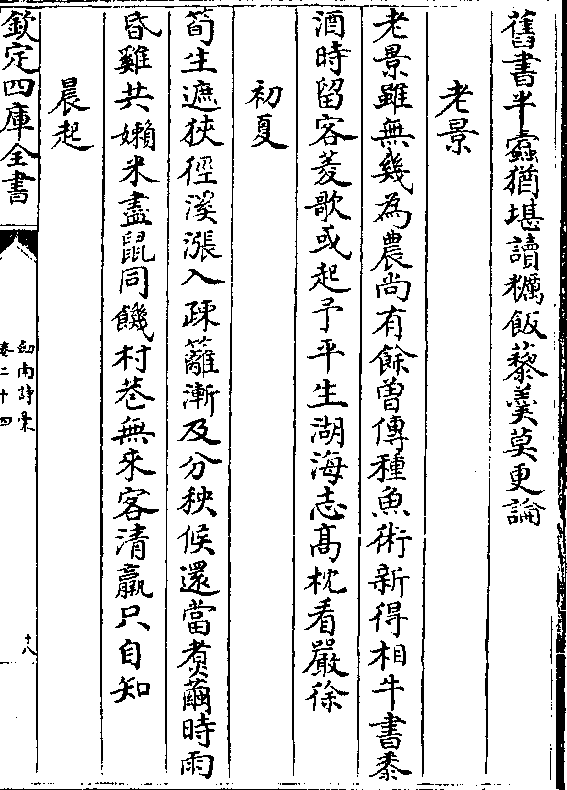 舊書半蠧猶堪讀糲飯藜羮莫更論
老景
老景雖無幾為農尚有餘曽傳種魚術新得相牛書黍
酒時留客菱歌或起予平生湖海志髙枕看嚴徐
初夏
筍生遮狹徑溪漲入疎籬漸及分秧候還當煮繭時雨
昏雞共嬾米盡䑕同饑村巷無來客清羸只自知
晨起
欽定四庫全書
劒南詩稾
卷二十四
十八